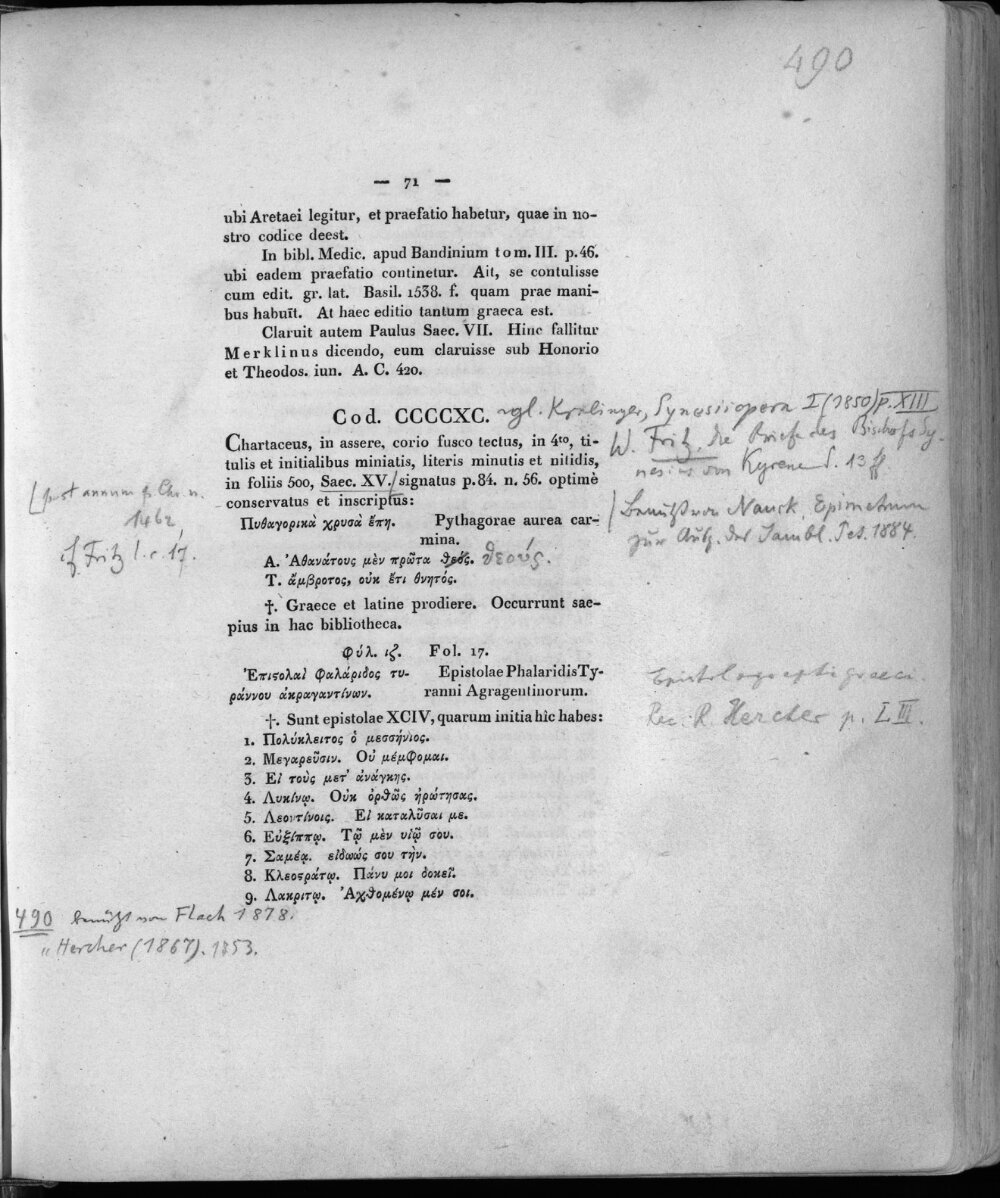 490
— 71 —
ubi Aretaei legitur, et praefatio habetur, quae in no-
stro codice deest.
In bibl. Medic. apud Bandinium tom. III. p. 46.
ubi eadem praefatio continetur. Ait, se contulisse
cum edit. gr. lat. Basil. 1538. f. quam prae mani-
bus habuït. At haec editio tantum graeca est.
Claruit autem Paulus Saec. VII. Hinc fallitur
Merklinus dicendo, eum claruisse sub Honorio
et Theodos. iun. A. C. 420.
Cod. CCCCXC. vgl. Krabinger, Synesii opera I (1850) p. XIII
W. Fritz, die Briefe des Bischofs Sy-
nesius von Kyrene S. 13 ff
Chartaceus, in assere, corio fusco tectus, in 4to, ti-
tulis et initialibus miniatis, literis minutis et nitidis,
in foliis 500, Saec. XV. signatus p. 84. n. 56. optimè
conservatus et inscriptus:
[post annum p. Chr. n.
1462
cf Fritz l. c. 17.
benützt von Nauck, Epimetrum
zur Ausg. des Iambl. Pet. 1884.
Πυθαγορικὰ χρυσᾶ ἔπη. Pythagorae aurea car-
mina.
Α. Ἀθανάτους μὲν πρῶτα θεός. θεούς.
Τ. ἄμβροτος, οὐκ ἔτι θνητός.
†. Graece et latine prodiere. Occurrunt sae-
pius in hac bibliotheca.
Φύλ. ιζ. Fol. 17.
Ἐπιϛολαὶ Φαλάριδος τυ- Epistolae Phalaridis Ty-
ράννου ἀκραγαντίνων. ranni Agragentinorum.
Epistolographi graeci.
Rec. R. Hercher p. LIII.
†. Sunt epistolae XCIV, quarum initia hîc habes:
1. Πολύκλειτος ὁ μεσσήνιος.
2. Μεγαρεῦσιν. Οὐ μέμφομαι.
3. Εἰ τοὺς μετ' ἀνάγκης.
4. Λυκίνῳ. Οὐκ ὀρθῶς ἠρώτησας.
5. Λεοντίνοις. Εἰ καταλῦσαι με.
6. Εὐξίππῳ. Τῷ μὲν υἱῷ σου.
7. Σαμέᾳ. εἰδωώς σου τὴν.
8. Κλεοϛράτῳ. Πάνυ μοι δοκεῖ.
9. Λακρίτῳ. Ἀχθομένῳ μέν σοι.
490 benützt von Flach 1878.
" Hercher (1867). 1853.